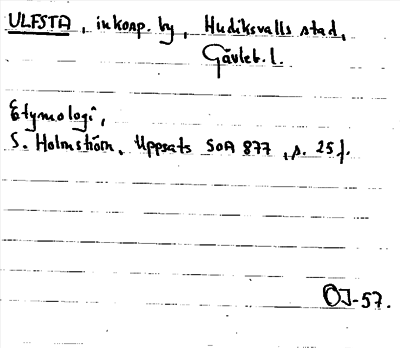 ULFSTA, inkorp. by, Hudiksvalls stad,
Gävleb. l.
Etymologi,
S. Holmström, Uppsats SOA 877, s. 25 f.
OJ-57.